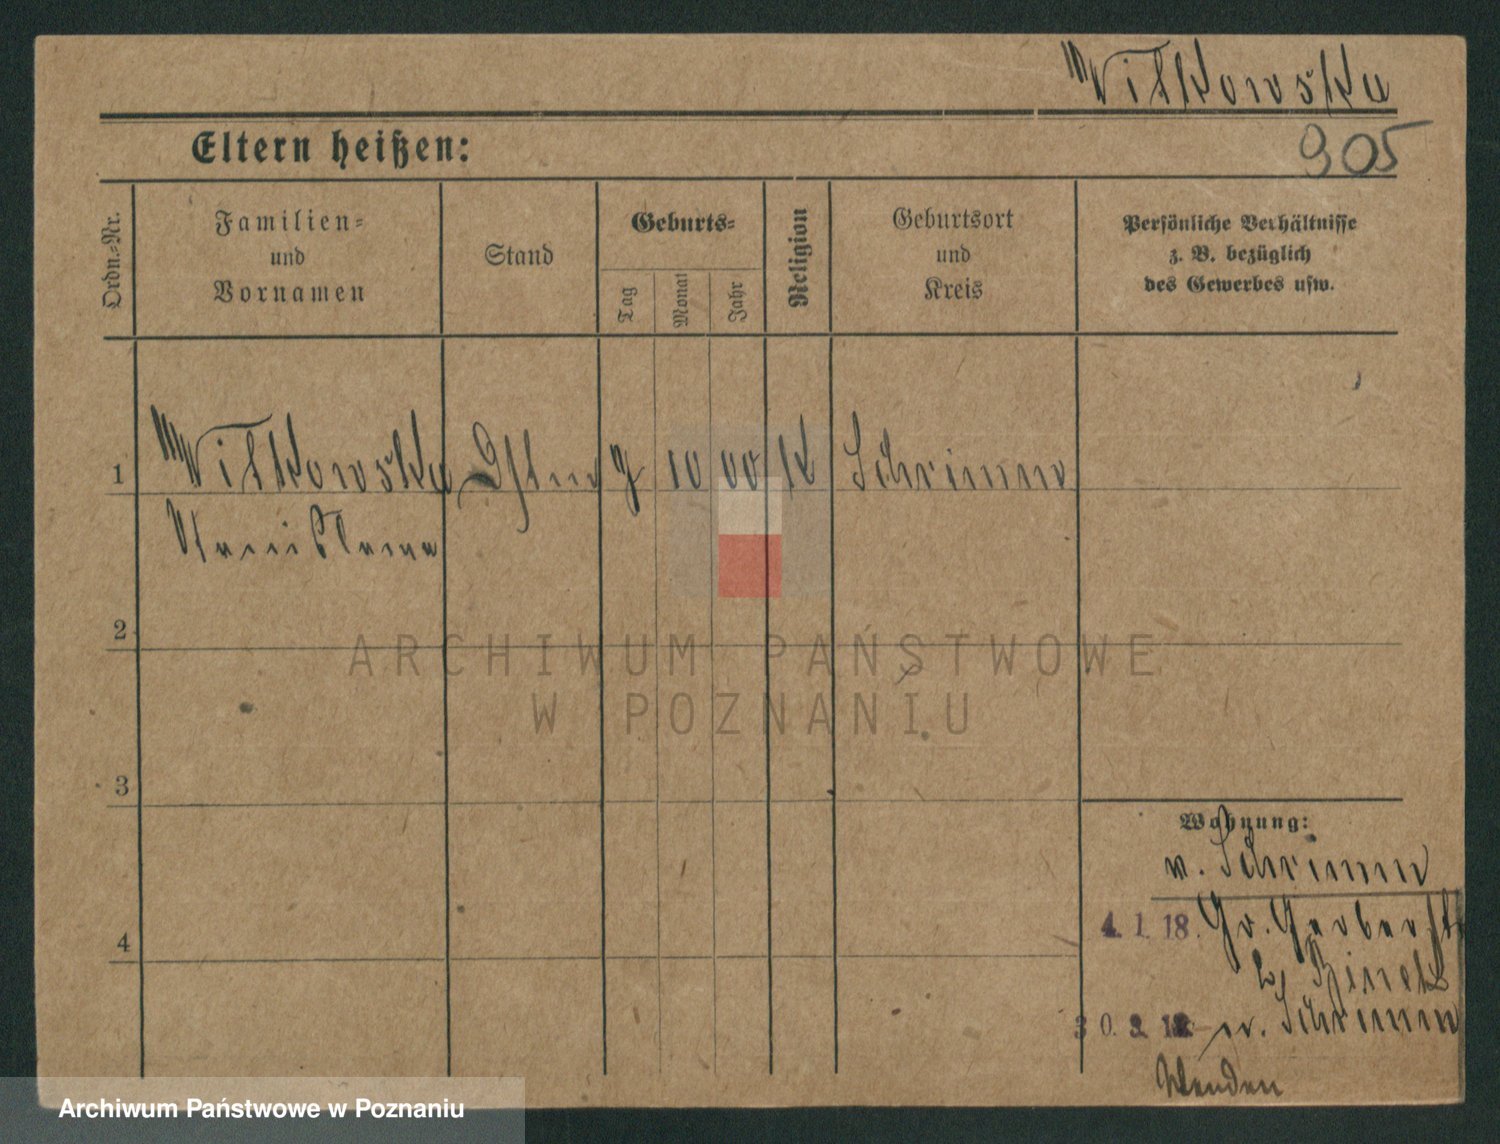 Witkowska
905
Eltern heißen:
Ordn.=Nr.
Familien=
und
Vornamen
Stand
Geburts=
Tag
Monat
Jahr
Religion
Geburtsort
und
Kreis
Persönliche Verhältnisse
z. B. bezüglich
des Gewerbes usw.
1 Witkowska 10 00 K Schrimm
2
3
4
Wohnung:
v. Schrimm
4. 1. 18. Gr. Gerberstr
b/
30. 3. 18. n. Schrimm
Wenden
ARCHIWUM PAŃSTWOWE
W POZNANIU
Archiwum Państwowe w Poznaniu